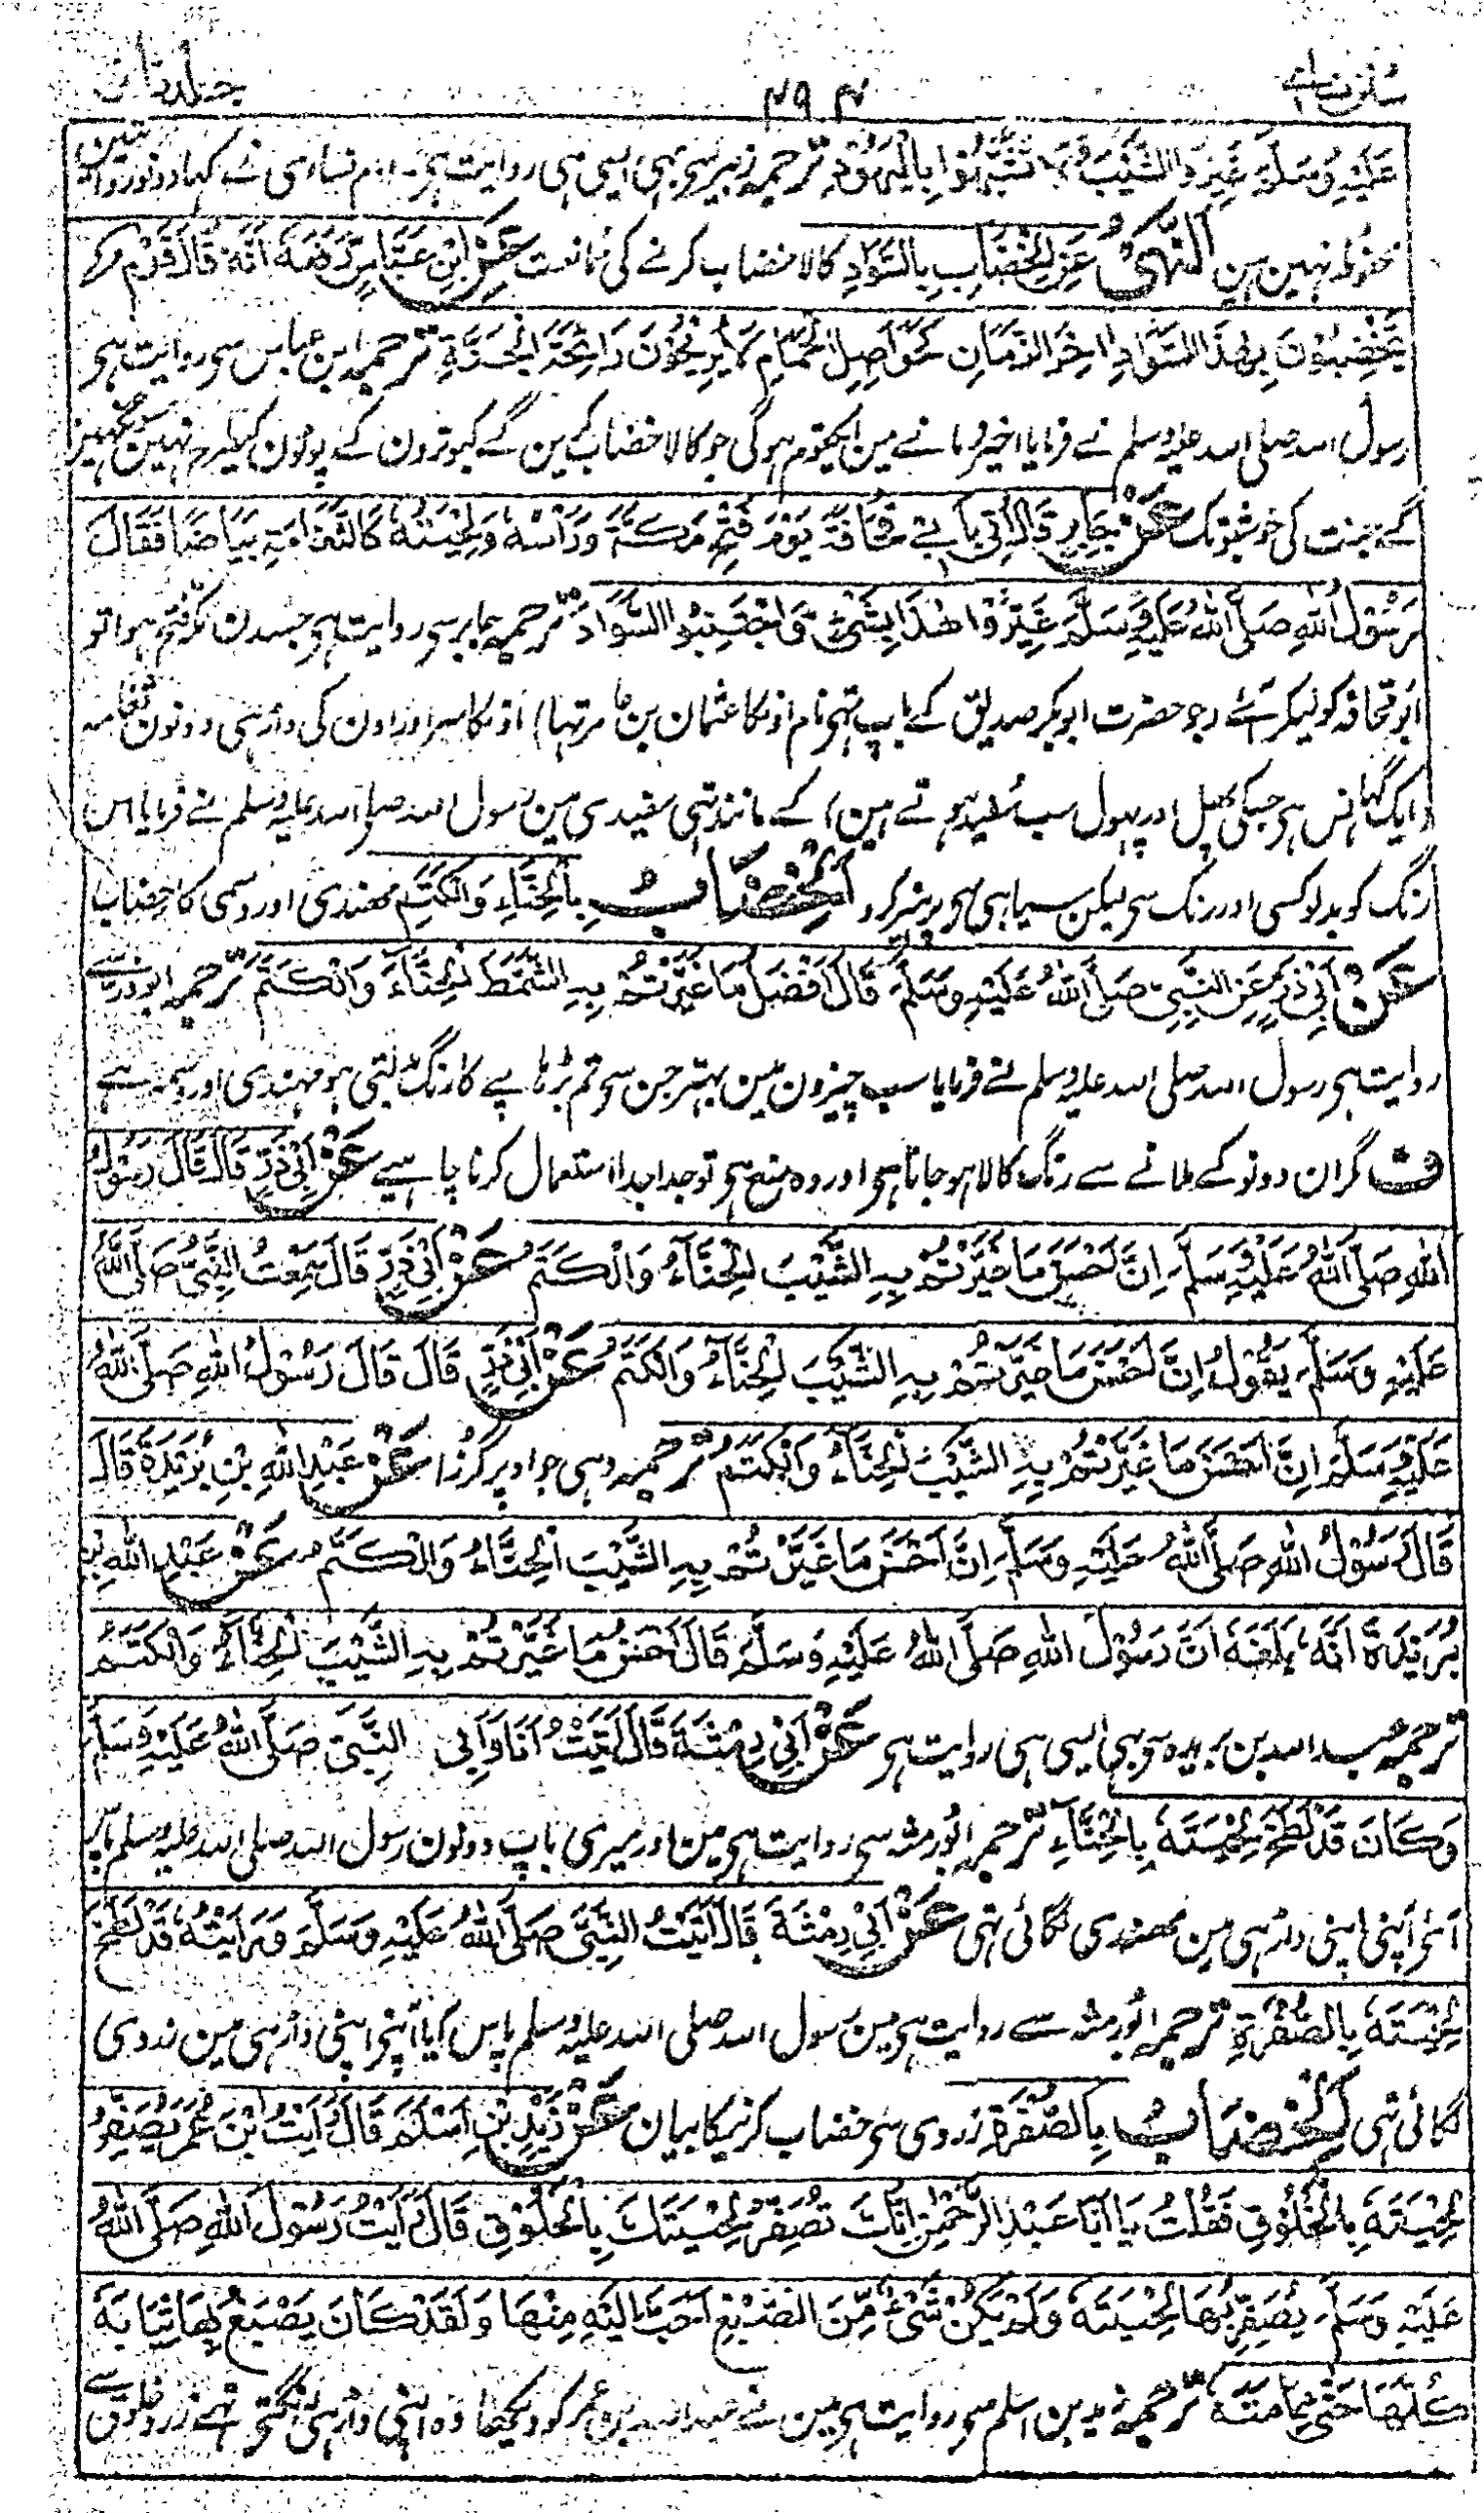 سنن نسائی ۴۹۴ جلد ثانی
عَلَيْهِ وَسَلَّمَ غَيِّرُوا الشَّيْبَ وَلَا تَشَبَّهُوا بِالْيَهُوْدِ ترجمہ زبیر سے بھی ایسی ہی روایت ہے۔ امام نساء ی نے کہا دونو روایتین
محفوظ نہین ہین اَلنَّهْيُ عَنِ الْخِضَابِ بِالسَّوَادِ کالا خضاب کرنے کی ممانعت عَنِ ابْنِ عَبَّاسٍ رَفَعَهُ اَنَّهُ قَالَ قَوْمٌ
يَخْضِبُوْنَ بِهٰذَا السَّوَادِ اٰخِرَ الزَّمَانِ كَحَوَاصِلِ الْحَمَامِ لَا يَرِيْحُوْنَ رَائِحَةَ الْجَنَّةِ ترجمہ ابن عباس سے روایت ہے
رسول اللہ صلی اللہ علیہ وسلم نے فرمایا اخیر زمانے مین ایک قوم ہوگی جو کالا خضاب کرین گے کبوترون کے پوٹون کیطرح نہین سونگھین
گے جنت کی خوشبو تک عَنْ جَابِرٍ قَالَ اُتِيَ بِاَبِيْ قُحَافَةَ يَوْمَ فَتْحِ مَكَّةَ وَرَاْسُهُ وَلِحْيَتُهُ كَالثَّغَامَةِ بَيَاضًا فَقَالَ
رَسُوْلُ اللهِ صَلَّى اللهُ عَلَيْهِ وَسَلَّمَ غَيِّرُوْا هٰذَا بِشَيْءٍ وَاجْتَنِبُوا السَّوَادَ ترجمہ جابر سے روایت ہے جسدن مکہ فتح ہوا تو
ابو قحافہ کو لیکر آئے (جو حضرت ابوبکر صدیق کے باپ تہے نام اونکا عثمان بن عامر تہا) اونکا سر اور اون کی داڑہی دونون ثغامہ
(ایک گہانس ہے جسکی پھل اور پہول سب سفید ہوتے ہین) کے مانند تہی سفیدی مین رسول اللہ صلی اللہ علیہ وسلم نے فرمایا اس
رنگ کو بدلو کسی اور رنگ سے لیکن سیاہی سے پرہیز کرو اَلْخِضَابُ بِالْحِنَّاءِ وَالْكَتَمِ مھندی اور وسمی کا خضاب
عَنْ اَبِيْ ذَرٍّ عَنِ النَّبِيِّ صَلَّى اللهُ عَلَيْهِ وَسَلَّمَ قَالَ اَفْضَلُ مَا غَيَّرْتُمْ بِهِ الشَّمَطَ الْحِنَّاءَ وَالْكَتَمَ ترجمہ ابو ذر سے
روایت ہے رسول اللہ صلی اللہ علیہ وسلم نے فرمایا سب چیزون مین بہتر جن سے تم بڑہاپے کا رنگ بدلتی ہو مہندی اور وسمہ ہے
ف گر ان دونو کے ملانے سے رنگ کالا ہو جاتا ہے اور وہ منع ہے تو جدا جدا استعمال کرنا چاہیے عَنْ اَبِيْ ذَرٍّ قَالَ قَالَ رَسُوْلُ
اللهِ صَلَّى اللهُ عَلَيْهِ وَسَلَّمَ اِنَّ اَحْسَنَ مَا غَيَّرْتُمْ بِهِ الشَّيْبَ الْحِنَّاءُ وَالْكَتَمُ عَنْ اَبِيْ ذَرٍّ قَالَ سَمِعْتُ النَّبِيَّ صَلَّى اللهُ
عَلَيْهِ وَسَلَّمَ يَقُوْلُ اِنَّ اَحْسَنَ مَا غَيَّرْتُمْ بِهِ الشَّيْبَ الْحِنَّاءُ وَالْكَتَمُ عَنْ اَبِيْ ذَرٍّ قَالَ قَالَ رَسُوْلُ اللهِ صَلَّى اللهُ
عَلَيْهِ وَسَلَّمَ اِنَّ اَحْسَنَ مَا غَيَّرْتُمْ بِهِ الشَّيْبَ الْحِنَّاءُ وَالْكَتَمُ ترجمہ وہی جو اوپر گزرا عَنْ عَبْدِ اللهِ بْنِ بُرَيْدَةَ قَالَ
قَالَ رَسُوْلُ اللهِ صَلَّى اللهُ عَلَيْهِ وَسَلَّمَ اِنَّ اَحْسَنَ مَا غَيَّرْتُمْ بِهِ الشَّيْبَ الْحِنَّاءُ وَالْكَتَمُ عَنْ عَبْدِ اللهِ بْنِ
بُرَيْدَةَ اَنَّهُ بَلَغَهُ اَنَّ رَسُوْلَ اللهِ صَلَّى اللهُ عَلَيْهِ وَسَلَّمَ قَالَ اَحْسَنُ مَا غَيَّرْتُمْ بِهِ الشَّيْبَ الْحِنَّاءُ وَالْكَتَمُ
ترجمہ عبد اللہ بن بریدہ سے بھی ایسی ہی روایت ہے عَنْ اَبِيْ رِمْثَةَ قَالَ اَتَيْتُ اَنَا وَاَبِي النَّبِيَّ صَلَّى اللهُ عَلَيْهِ وَسَلَّمَ
وَكَانَ قَدْ لَطَخَ لِحْيَتَهُ بِالْحِنَّاءِ ترجمہ ابو رمثہ سے روایت ہے مین اور میری باپ دونون رسول اللہ صلی اللہ علیہ وسلم پاس
آئے آپنی اپنی داڑہی مین مھندی لگائی تہی عَنْ اَبِيْ رِمْثَةَ قَالَ اَتَيْتُ النَّبِيَّ صَلَّى اللهُ عَلَيْهِ وَسَلَّمَ وَرَاَيْتُهُ قَدْ لَطَخَ
لِحْيَتَهُ بِالصُّفْرَةِ ترجمہ ابو رمثہ سے روایت ہے مین رسول اللہ صلی اللہ علیہ وسلم پاس آیا آپنے اپنی داڑہی مین زردی
لگائی تہی اَلْخِضَابُ بِالصُّفْرَةِ زردی سے خضاب کرنیکا بیان عَنْ زَيْدِ بْنِ اَسْلَمَ قَالَ رَاَيْتُ ابْنَ عُمَرَ يُصَفِّرُ
لِحْيَتَهُ بِالْخَلُوْقِ فَقُلْتُ يَا اَبَا عَبْدِ الرَّحْمٰنِ اِنَّكَ تُصَفِّرُ لِحْيَتَكَ بِالْخَلُوْقِ قَالَ رَاَيْتُ رَسُوْلَ اللهِ صَلَّى اللهُ
عَلَيْهِ وَسَلَّمَ يُصَفِّرُ بِهَا لِحْيَتَهُ وَلَمْ يَكُنْ شَيْءٌ مِّنَ الصِّبْغِ اَحَبَّ اِلَيْهِ مِنْهَا وَلَقَدْ كَانَ يَصْبَغُ بِهَا ثِيَابَهُ
كُلَّهَا حَتّٰى عِمَامَتَهُ ترجمہ زید بن اسلم سے روایت ہے مین نے عبد اللہ بن عمر کو دیکھا وہ اپنی داڑہی رنگتے تہے زرد خلوق سے